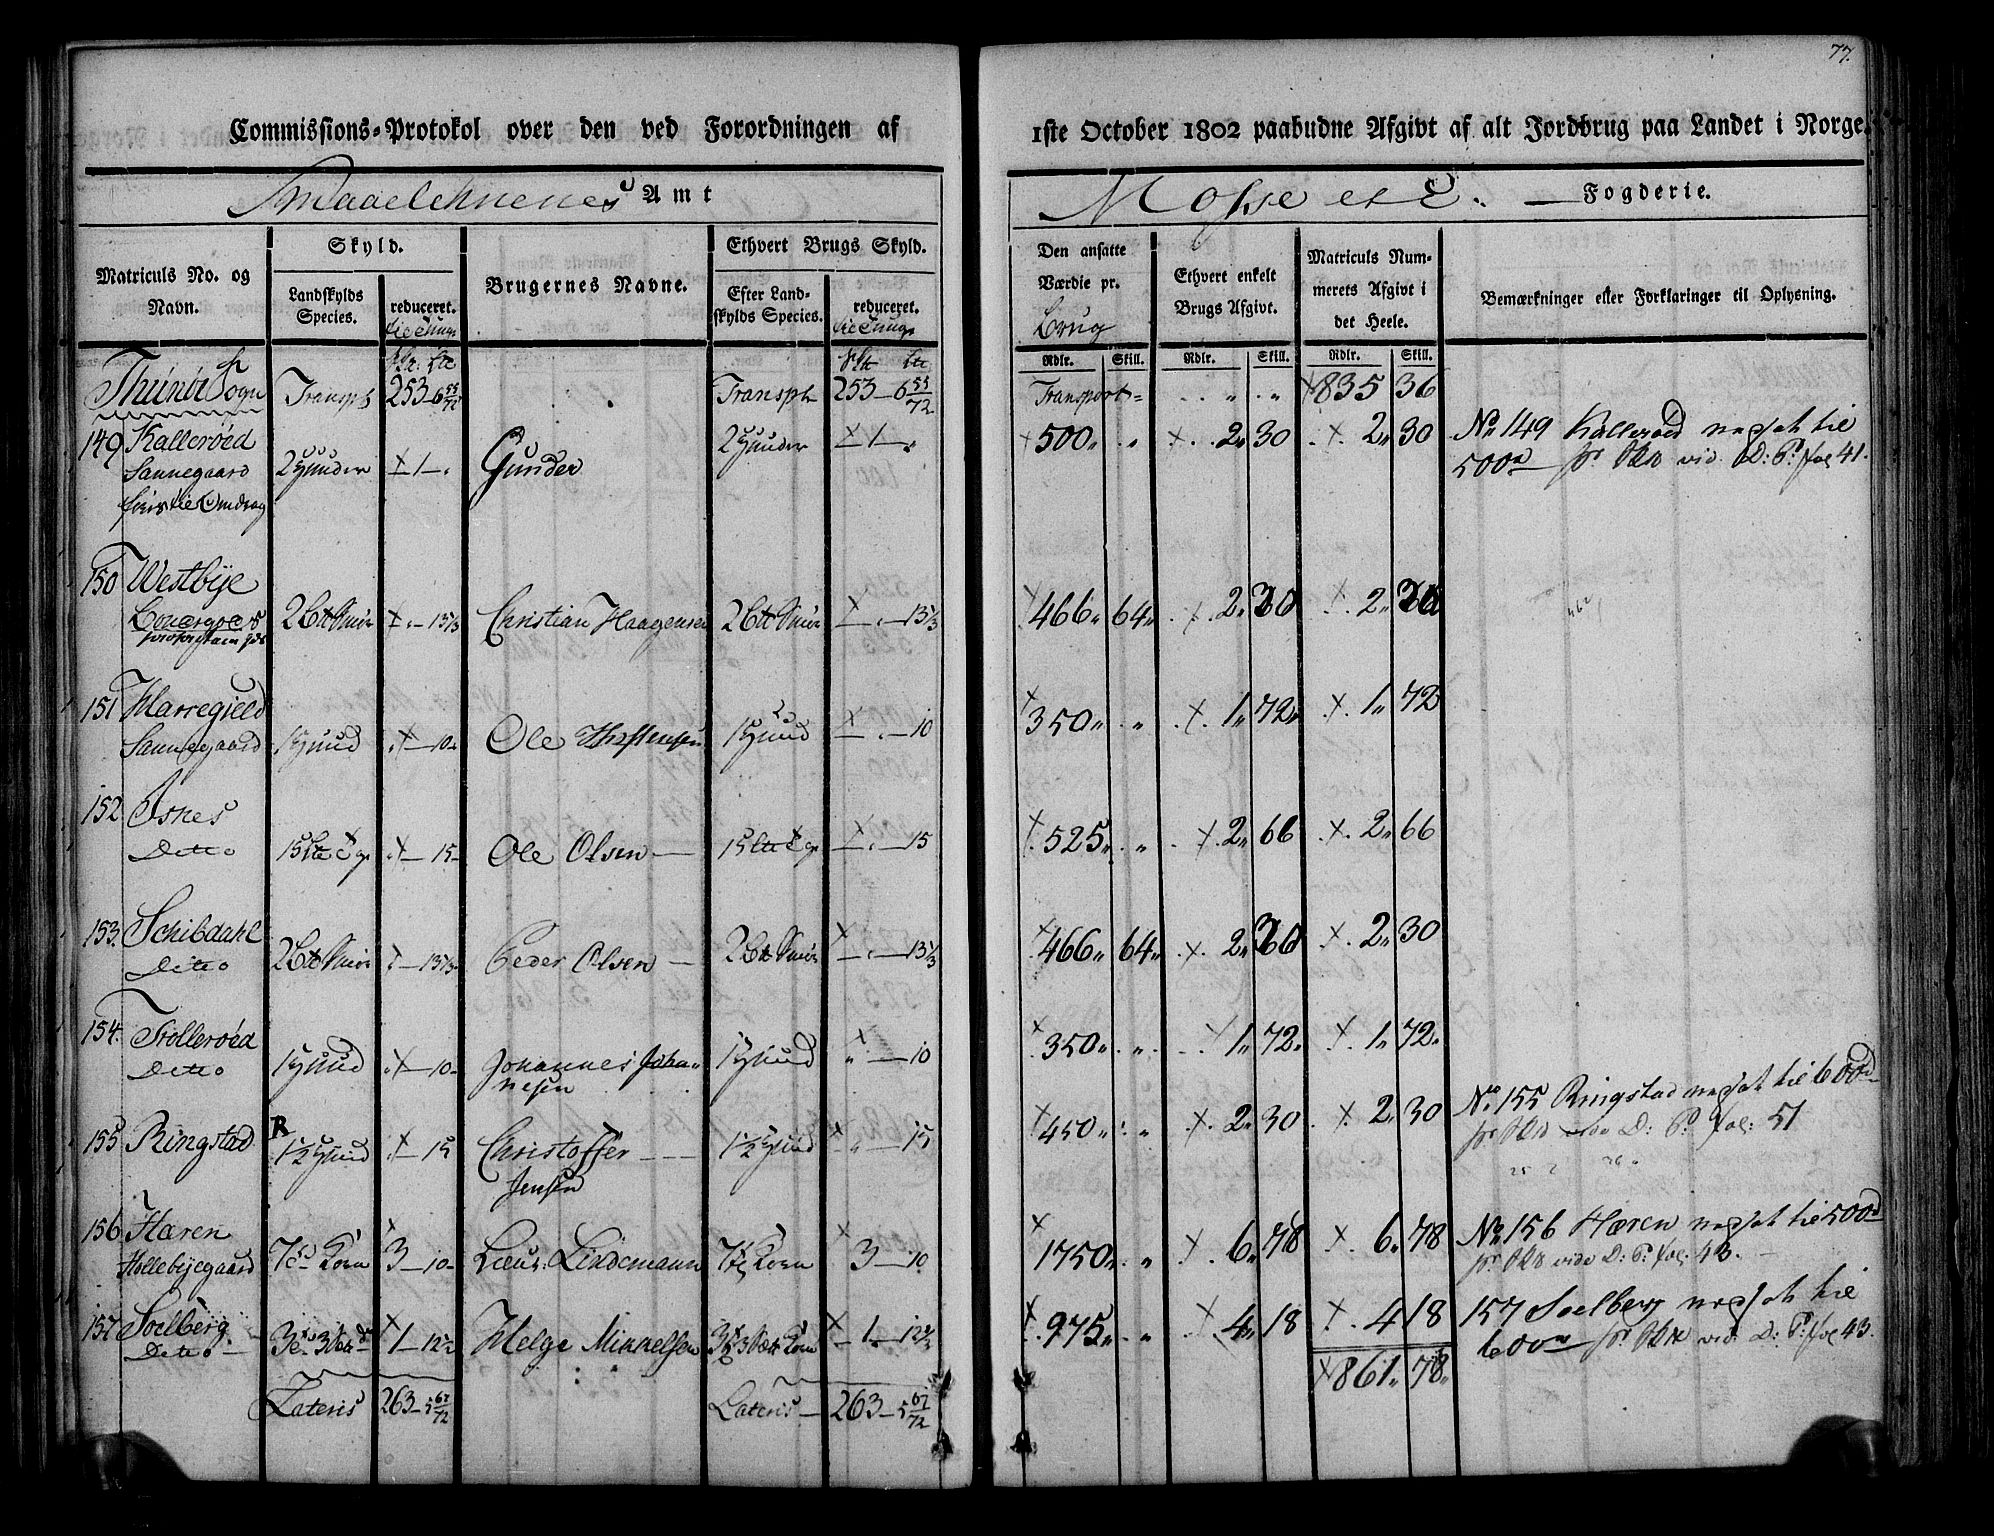 77.
Commissions-Protokol over den ved Forordningen af 1ste October 1802 paabudne Afgivt af alt Jordbrug paa Landet i Norge.
Smaaelehnenes Amt
Mosse etc. Fogderie.
Matriculs No. og Navn.
Skyld.
Landskylds Species.
reduceret.
Brugernes Navne.
Ethvert Brugs Skyld.
Efter Landskylds Species.
reduceret.
Den ansatte Værdie pr. Brug
Ethvert enkelt Brugs Afgivt.
Matriculs Nummerets Afgivt i det Heele.
Bemærkninger eller Forklaringer til Oplysning.
Rdlr. Skill. Rdlr. Skill. Rdlr. Skill.
Thunøe Sogn Transpt 253 - 6 55/72 Transpt 253 - 6 55/72 Transport 835 36
149 Kallerøed 2 Hunder 1 Gunder 2 Hunder 1 500 2 30 2 30 No 149 Kallerød
Sannegaard 500 vid D: P: fol 41.
150 Westbye
2 Smör 13 1/3 Christian Haagensen 2 Smör 13 1/3 466 64 2 30 2 30
151 Harregield
Sannegaard 1 Hund 10 Ole 1 Hund 10 350 1 72 1 72
152 Isnes
Ditto 15 15 Ole Olsen 15 15 525 2 66 2 66
153. Schibdahl
Ditto 2 Smör 13 1/3 Peder Olsen 2 Smör 13 1/3 466 64 2 30 2 30
154. Trollerøed
Ditto 1 Hund 10 Johannes Johannesen 1 Hund 10 350 1 72 1 72
155 Ringstad R 1 1/2 Hund 15 Christoffer Jensen 1 1/2 Hund 15 450 2 30 2 30 No 155 Ringstad til 600
D: P: fol: 51
156 Haren
Hollebyegaard 7 Korn 3 - 10 Lieut: Lindemann 7 Korn 3 - 10 1750 6 78 6 78 No 156 Haren til 500
vide D: P: fol: 43.
157 Soelberg
Ditto 3 1 - 12 1/2 Helge Mickelsen 3 Korn 1 - 12 1/2 975 4 18 4 18 157 Soelberg til
600 vid D: P: fol 43.
861 78
Lateris 263 - 5 67/72 Lateris 263 - 5 67/72